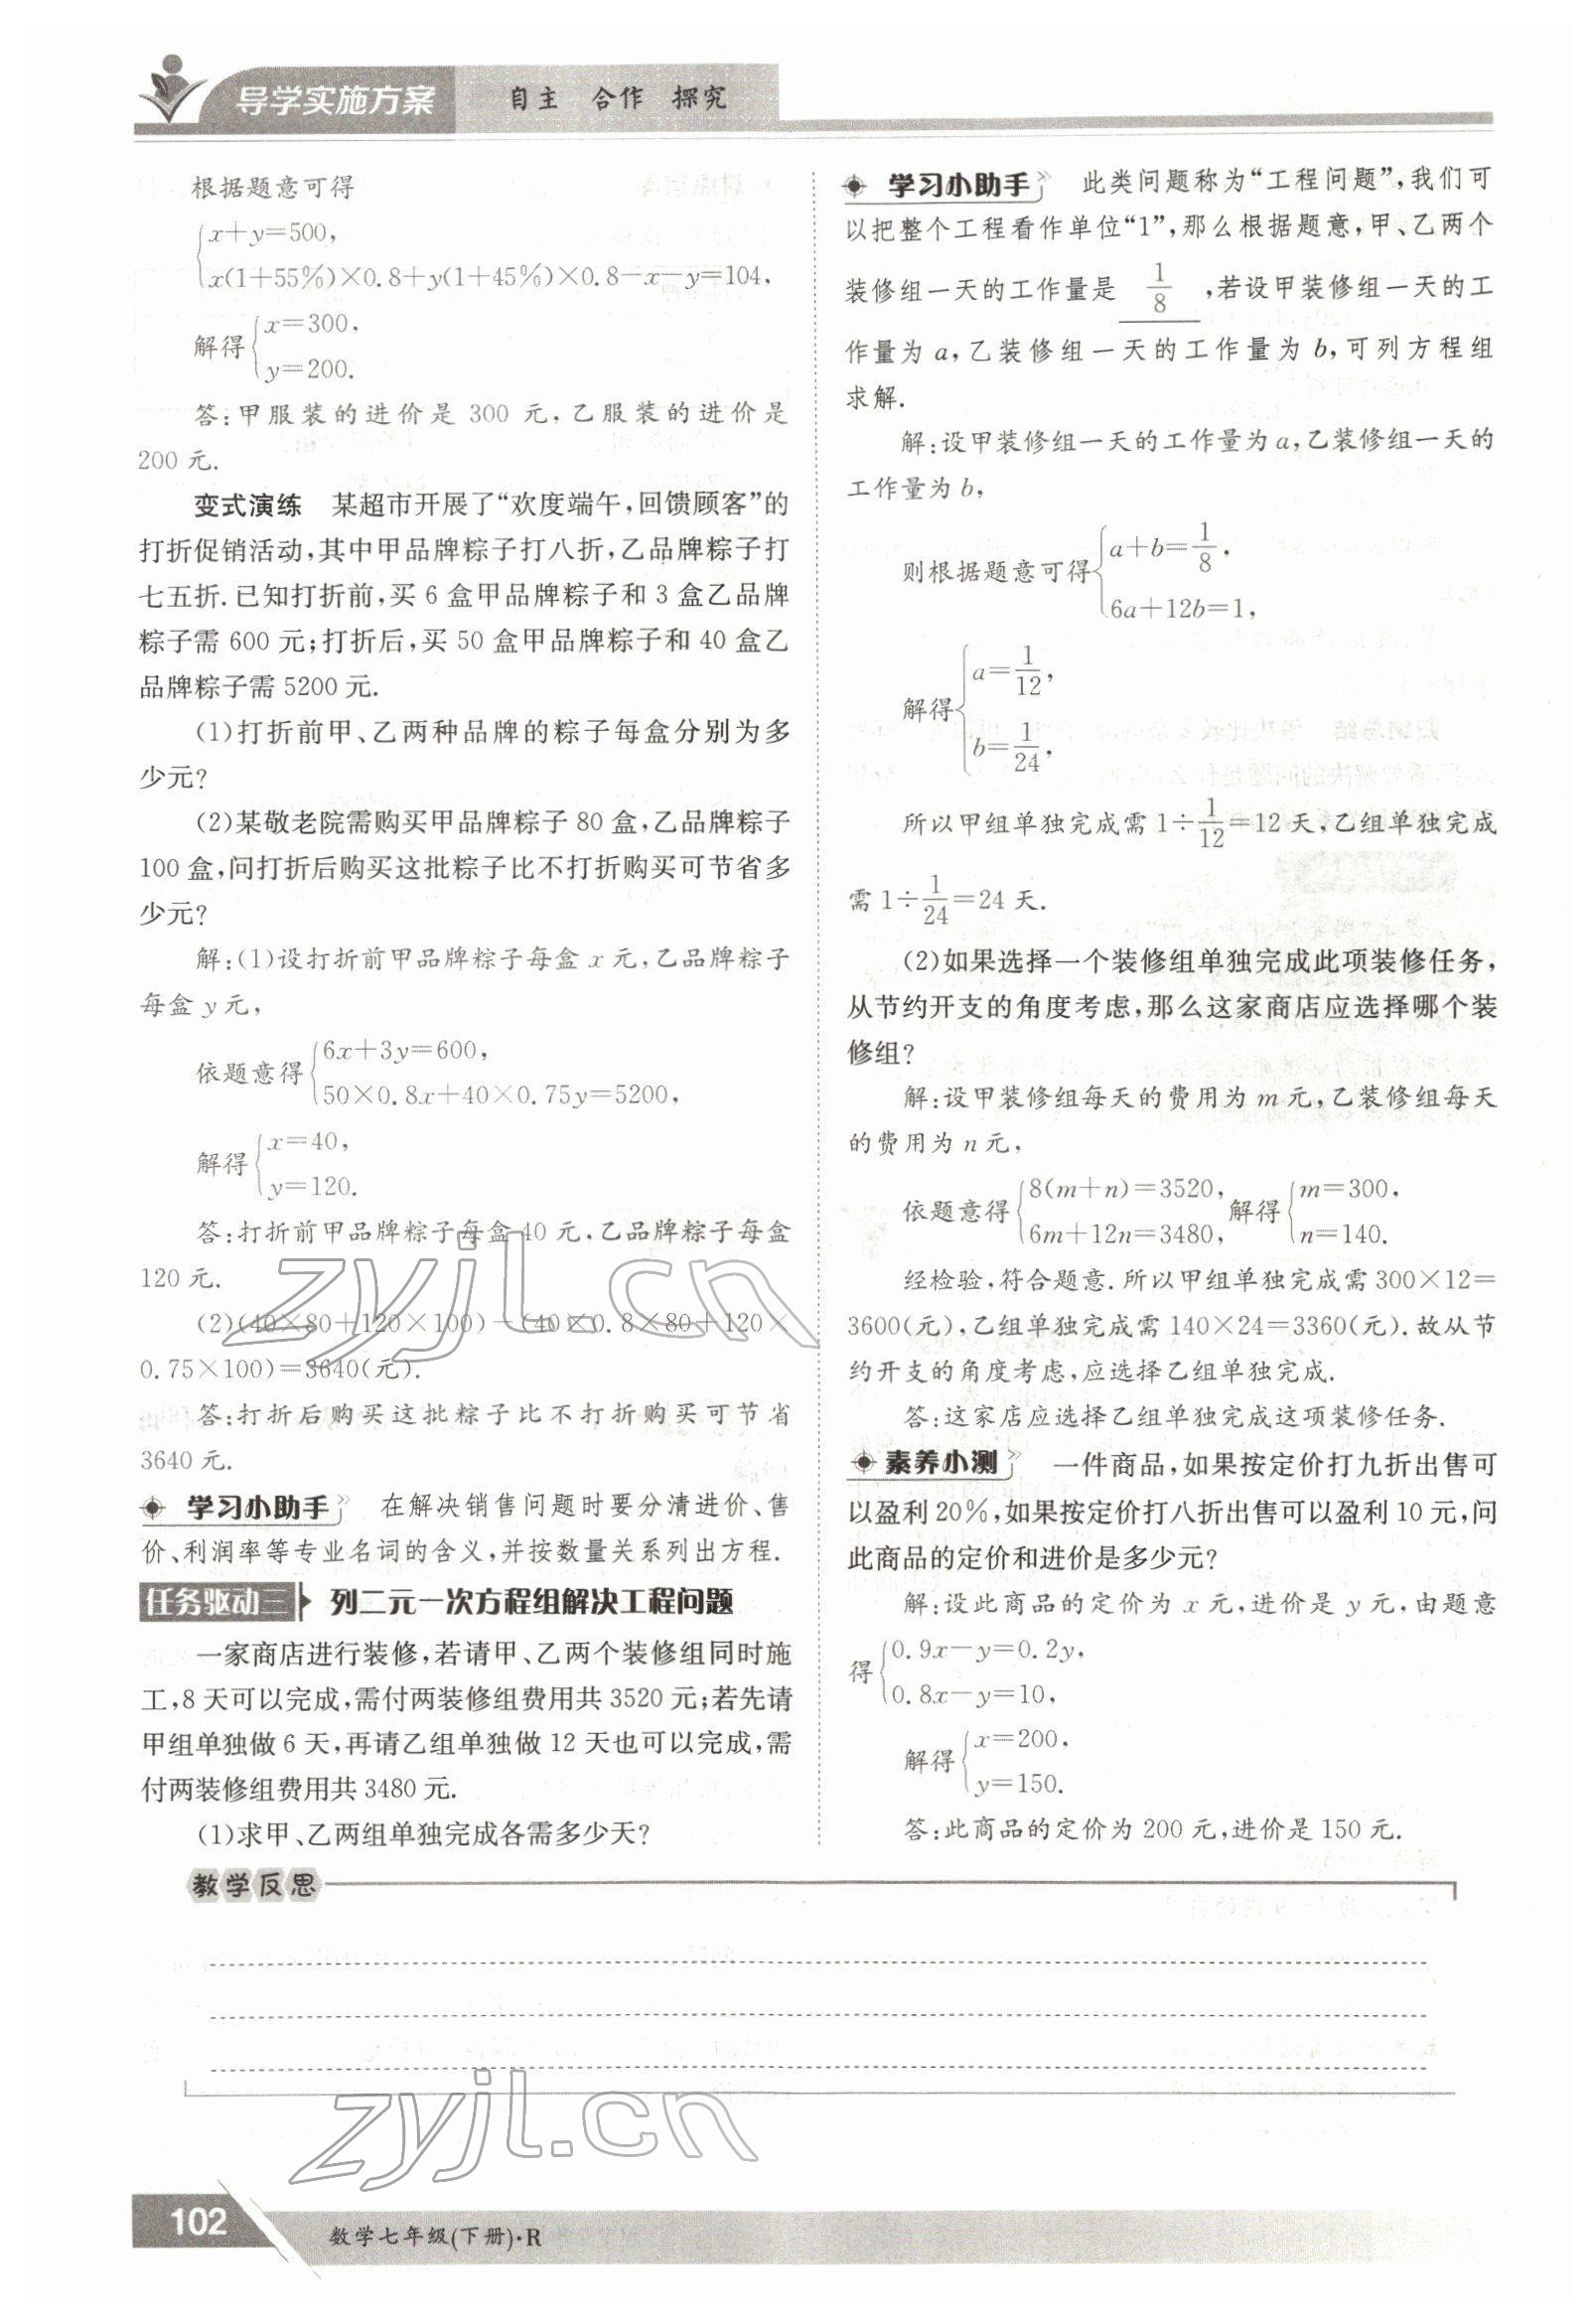 导学实施方案 自主 合作 探究
根据题意可得
x+y=500,
x(1+55%)×0.8+y(1+45%)×0.8-x-y=104,
解得
x=300,
y=200.
答:甲服装的进价是 300 元,乙服装的进价是
200 元.
变式演练 某超市开展了“欢度端午,回馈顾客”的
打折促销活动,其中甲品牌粽子打八折,乙品牌粽子打
七五折.已知打折前,买 6 盒甲品牌粽子和 3 盒乙品牌
粽子需 600 元;打折后,买 50 盒甲品牌粽子和 40 盒乙
品牌粽子需 5200 元.
(1)打折前甲、乙两种品牌的粽子每盒分别为多
少元?
(2)某敬老院需购买甲品牌粽子 80 盒,乙品牌粽子
100 盒,问打折后购买这批粽子比不打折购买可节省多
少元?
解:(1)设打折前甲品牌粽子每盒 x 元,乙品牌粽子
每盒 y 元,
依题意得
6x+3y=600,
50×0.8x+40×0.75y=5200,
解得
x=40,
y=120.
答:打折前甲品牌粽子每盒 40 元,乙品牌粽子每盒
120 元.
(2)(40×80+120×100)-(40×0.8×80+120×
0.75×100)=3640(元).
答:打折后购买这批粽子比不打折购买可节省
3640 元.
学习小助手 在解决销售问题时要分清进价、售
价、利润率等专业名词的含义,并按数量关系列出方程.
任务驱动三 列二元一次方程组解决工程问题
一家商店进行装修,若请甲、乙两个装修组同时施
工,8 天可以完成,需付两装修组费用共 3520 元;若先请
甲组单独做 6 天,再请乙组单独做 12 天也可以完成,需
付两装修组费用共 3480 元.
(1)求甲、乙两组单独完成各需多少天?
学习小助手 此类问题称为“工程问题”,我们可
以把整个工程看作单位“1”,那么根据题意,甲、乙两个
装修组一天的工作量是 1/8 ,若设甲装修组一天的工
作量为 a,乙装修组一天的工作量为 b,可列方程组
求解.
解:设甲装修组一天的工作量为 a,乙装修组一天的
工作量为 b,
则根据题意可得
a+b=1/8,
6a+12b=1,
解得
a=1/12,
b=1/24,
所以甲组单独完成需 1÷1/12=12 天,乙组单独完成
需 1÷1/24=24 天.
(2)如果选择一个装修组单独完成此项装修任务,
从节约开支的角度考虑,那么这家商店应选择哪个装
修组?
解:设甲装修组每天的费用为 m 元,乙装修组每天
的费用为 n 元,
依题意得
8(m+n)=3520,
6m+12n=3480,
解得
m=300,
n=140.
经检验,符合题意.所以甲组单独完成需 300×12=
3600(元),乙组单独完成需 140×24=3360(元).故从节
约开支的角度考虑,应选择乙组单独完成.
答:这家店应选择乙组单独完成这项装修任务.
素养小测 一件商品,如果按定价打九折出售可
以盈利 20%,如果按定价打八折出售可以盈利 10 元,问
此商品的定价和进价是多少元?
解:设此商品的定价为 x 元,进价是 y 元,由题意
得
0.9x-y=0.2y,
0.8x-y=10,
解得
x=200,
y=150.
答:此商品的定价为 200 元,进价是 150 元.
教学反思
zyjl.cn
zyjl.cn
102 数学七年级(下册)·R